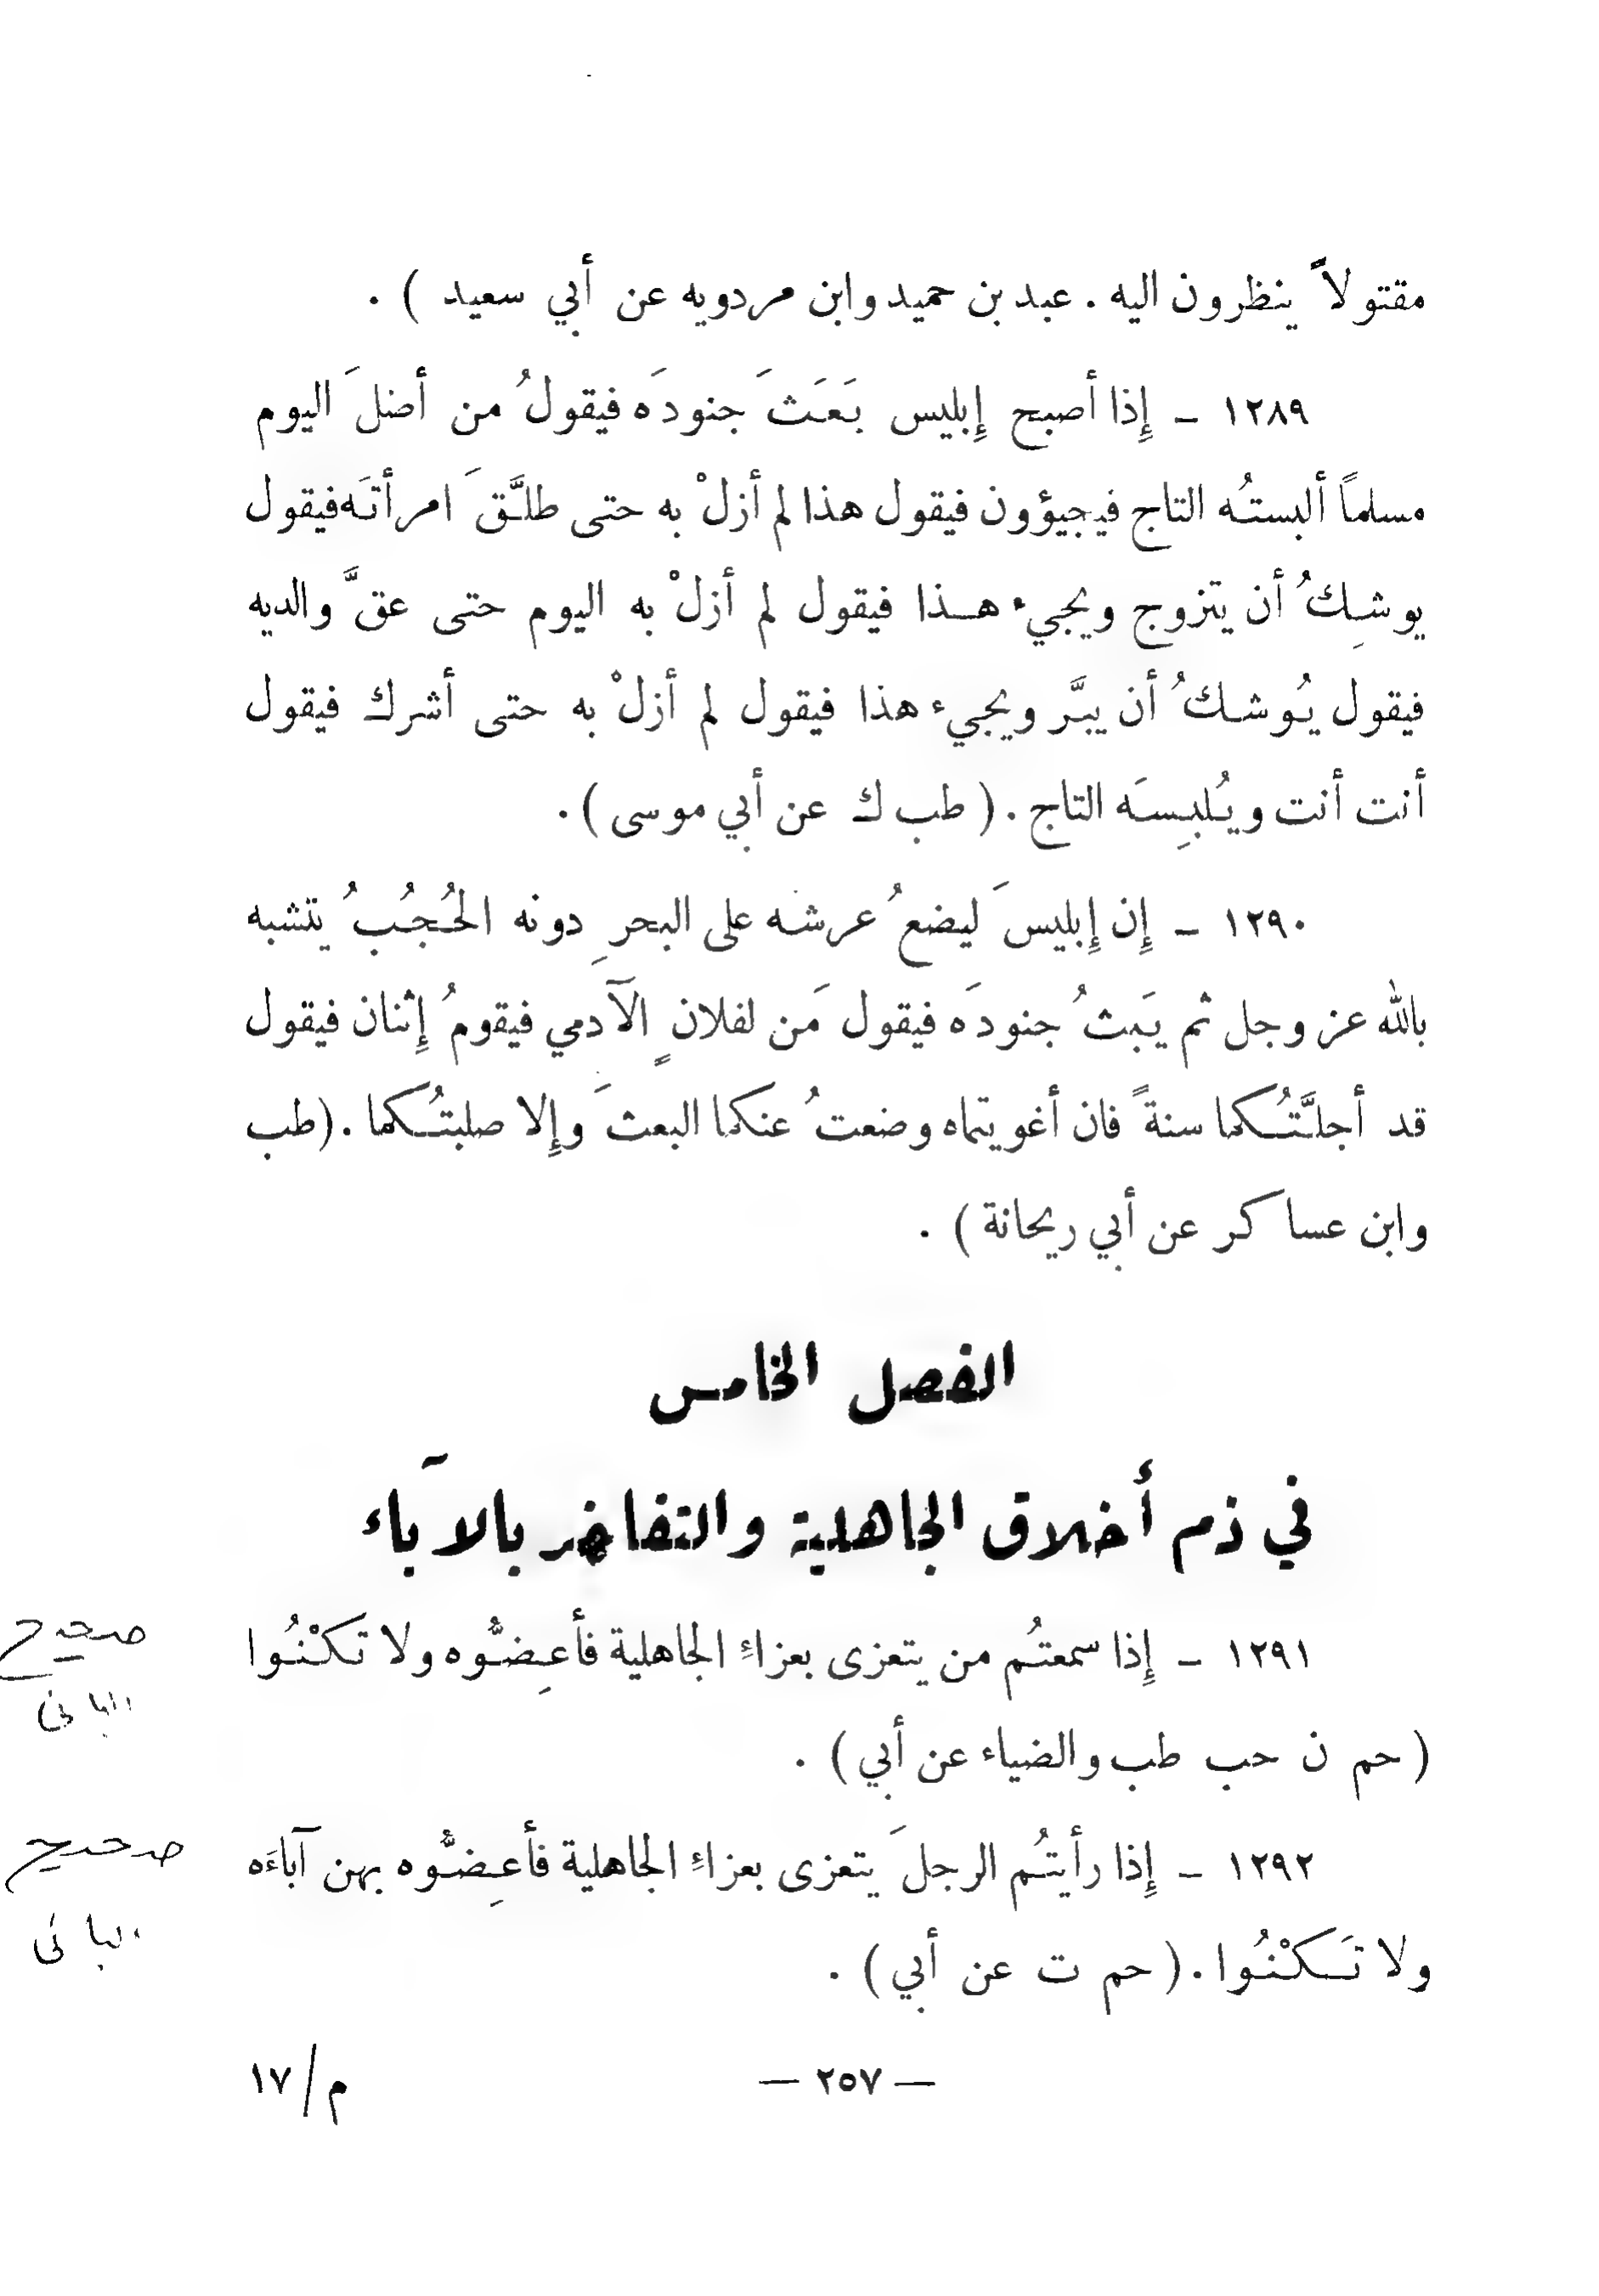 مقتولاً ينظرون اليه . عبد بن حميد وابن مردويه عن أبي سعيد ) .
١٢٨٩ ـ إِذا أصبح إِبليس بَعَثَ جنودَه فيقولُ من أضلَ اليوم
مسلماً ألبستُه التاج فيجيؤون فيقول هذا لم أزلْ به حتى طلَّقَ امرأتَه فيقول
يوشِكُ أن يتزوج ويجيء هـذا فيقول لم أزلْ به اليوم حتى عقَّ والديه
فيقول يُوشكُ أن يبَّر ويجيء هذا فيقول لم أزلْ به حتى أشرك فيقول
أنت أنت ويُلبِسَه التاج . ( طب ك عن أبي موسى ) .
١٢٩٠ ـ إِن إِبليسَ ليضعُ عرشه على البحرِ دونه الحُجُبُ يتشبه
بالله عز وجل ثم يَبثُ جنودَه فيقول مَن لفلانٍ الآدمي فيقومُ إِثنان فيقول
قد أجلَّتُكما سنةً فان أغويتماه وضعتُ عنكما البعثَ وإِلا صلبتُكما . ( طب
وابن عساكر عن أبي ريحانة ) .
الفصل الخامس
في ذم أخلاق الجاهلية والتفاخر بالآباء
١٢٩١ ـ إِذا سمعتُم من يتعزى بعزاءِ الجاهلية فأعِضُّوه ولا تَكْنُوا
صحيح
البانى
( حم ن حب طب والضياء عن أبي ) .
١٢٩٢ ـ إِذا رأيتُم الرجلَ يتعزى بعزاءِ الجاهلية فأعِضُّوه بهن آباءَه
صحيح
البانى
ولا تَكْنُوا . ( حم ت عن أبي ) .
— ٢٥٧ —
م/١٧